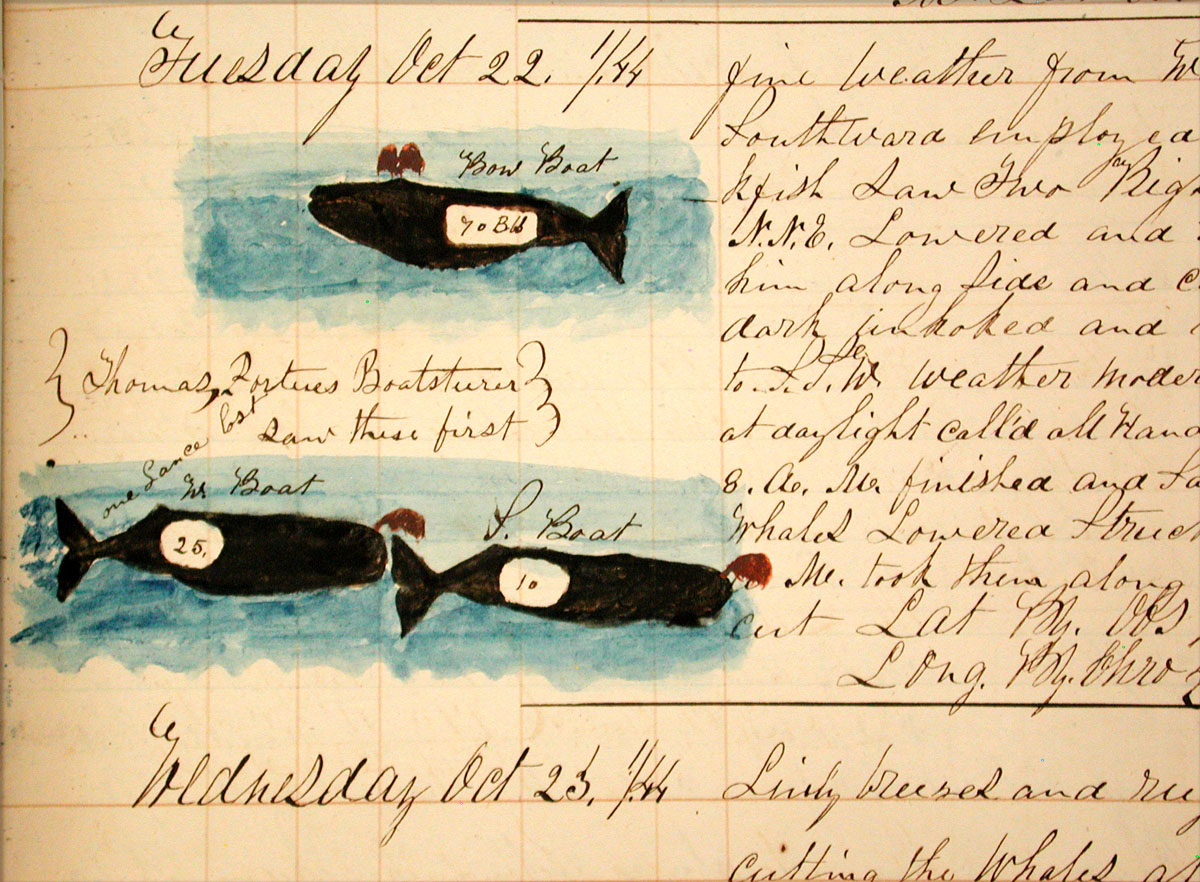 Tuesday Oct 22. 1/44
Bow Boat
70 Bbl
{ Thomas Fortues Boatsturer }
saw these first
one Lance lost
W. Boat
25.
S. Boat
10
fine weather from
Southward employed
kfish Saw Two Rig
N.N.E. Lowered and
him along Side and c
dark junkoked and
to S.S.W. weather moder
at daylight call'd all Hand
8. A. M. finished and Sa
Whales Lowered Struck
M. took them along
cut Lat By. Obs
Long. By. Chro
Wednesday Oct 23. 1/44
Linly breezes and rug
cutting the Whales at